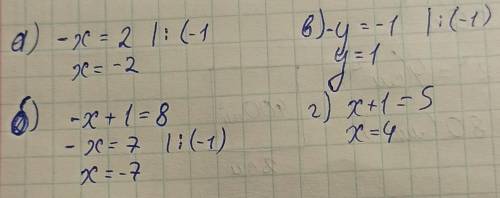 а) -x = 2 | : (-1
x = -2
б) -x + 1 = 8
-x = 7 | : (-1)
x = -7
в) -y = -1 | : (-1)
y = 1
г) x + 1 = 5
x = 4